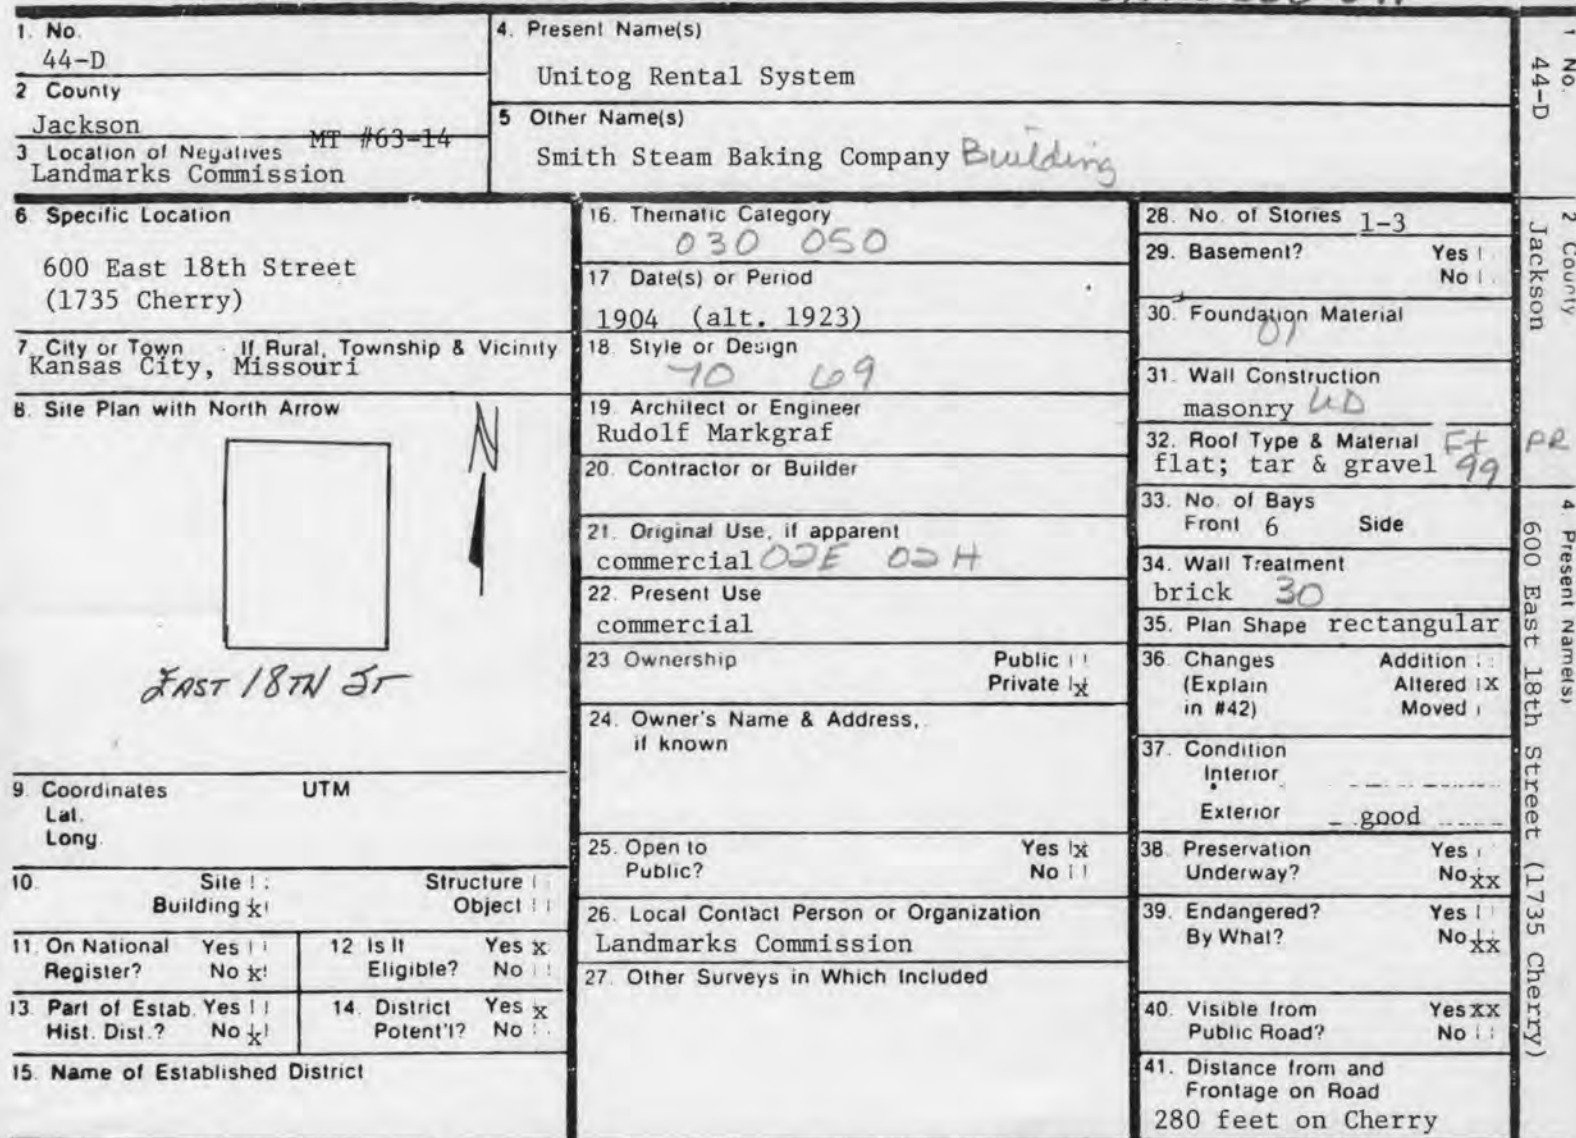 1. No.
44-D
2 County
Jackson
MT #63-14
3 Location of Negatives
Landmarks Commission
4. Present Name(s)
Unitog Rental System
5 Other Name(s)
Smith Steam Baking Company Building
6. Specific Location
600 East 18th Street
(1735 Cherry)
7. City or Town If Rural, Township & Vicinity
Kansas City, Missouri
8. Site Plan with North Arrow
N
EAST 18TH ST
9. Coordinates UTM
Lat.
Long.
10. Site Structure
Building x Object
11. On National Yes
Register? No x
12 Is It Yes x
Eligible? No
13. Part of Estab. Yes
Hist. Dist.? No x
14. District Yes x
Potent'l? No
15. Name of Established District
16. Thematic Category
030 050
17 Date(s) or Period
1904 (alt. 1923)
18. Style or Design
70 69
19. Architect or Engineer
Rudolf Markgraf
20. Contractor or Builder
21. Original Use, if apparent
commercial 02E 02H
22. Present Use
commercial
23 Ownership Public
Private x
24. Owner's Name & Address,
if known
25. Open to Yes x
Public? No
26. Local Contact Person or Organization
Landmarks Commission
27. Other Surveys in Which Included
28. No. of Stories 1-3
29. Basement? Yes
No
30. Foundation Material
01
31. Wall Construction
masonry UD
32. Roof Type & Material Ft PR
flat; tar & gravel 99
33. No. of Bays
Front 6 Side
34. Wall Treatment
brick 30
35. Plan Shape rectangular
36. Changes Addition
(Explain Altered X
in #42) Moved
37. Condition
Interior
Exterior good
38. Preservation Yes
Underway? No xx
39. Endangered? Yes
By What? No xx
40. Visible from Yes xx
Public Road? No
41. Distance from and
Frontage on Road
280 feet on Cherry
1 No.
44-D
2 County
Jackson
4. Present Name(s)
600 East 18th Street (1735 Cherry)